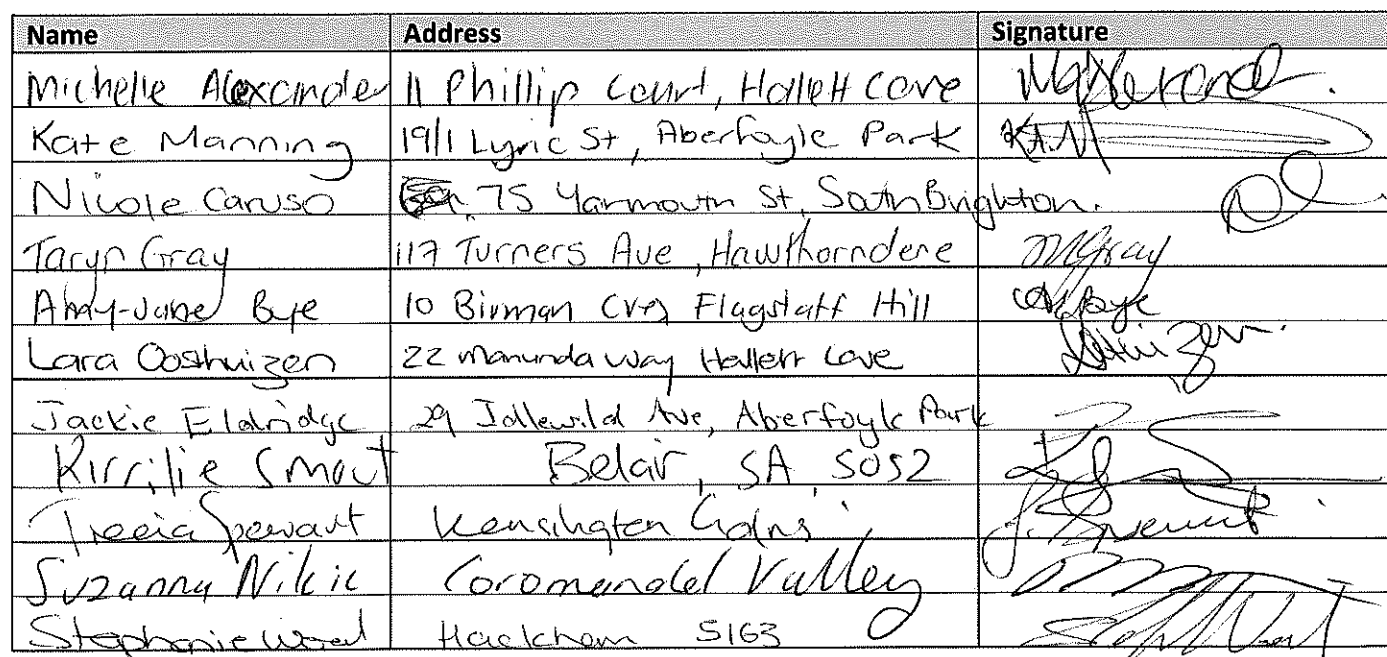 Name Address Signature
Michelle Alexander 11 Phillip Court, Hallett Cove
Kate Manning 19/1 Lyric St, Aberfoyle Park K.A.M
Nicole Caruso 75 Yarmouth St, South Brighton.
Taryn Gray 117 Turners Ave, Hawthorndene MGray
Amy-Jane Bye 10 Birman Cres Flagstaff Hill
Lara Oosthuizen 22 Manunda Way Hallett Cove
Jackie Eldridge 29 Idlewild Ave, Aberfoyle Park
Kirrilie Smout Belair, SA, 5052
Stewart Kensington Gdns
Suzanna Nikic Coromandel Valley
Stephanie Wood Hackham 5163